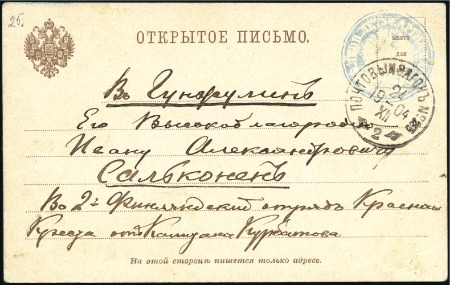 25.
ОТКРЫТОЕ ПИСЬМО.
место
для
ПОЧТОВЫЙ ВАГОНЪ №
2
19-04
XII
2
Въ Гунжулинъ
Его Высокоблагородію
Ивану Александровичу
Сальконенъ
Въ 2й Финляндскій отрядъ Краснаго
Креста отъ Капитана Курбатова
На этой сторонѣ пишется только адресъ.